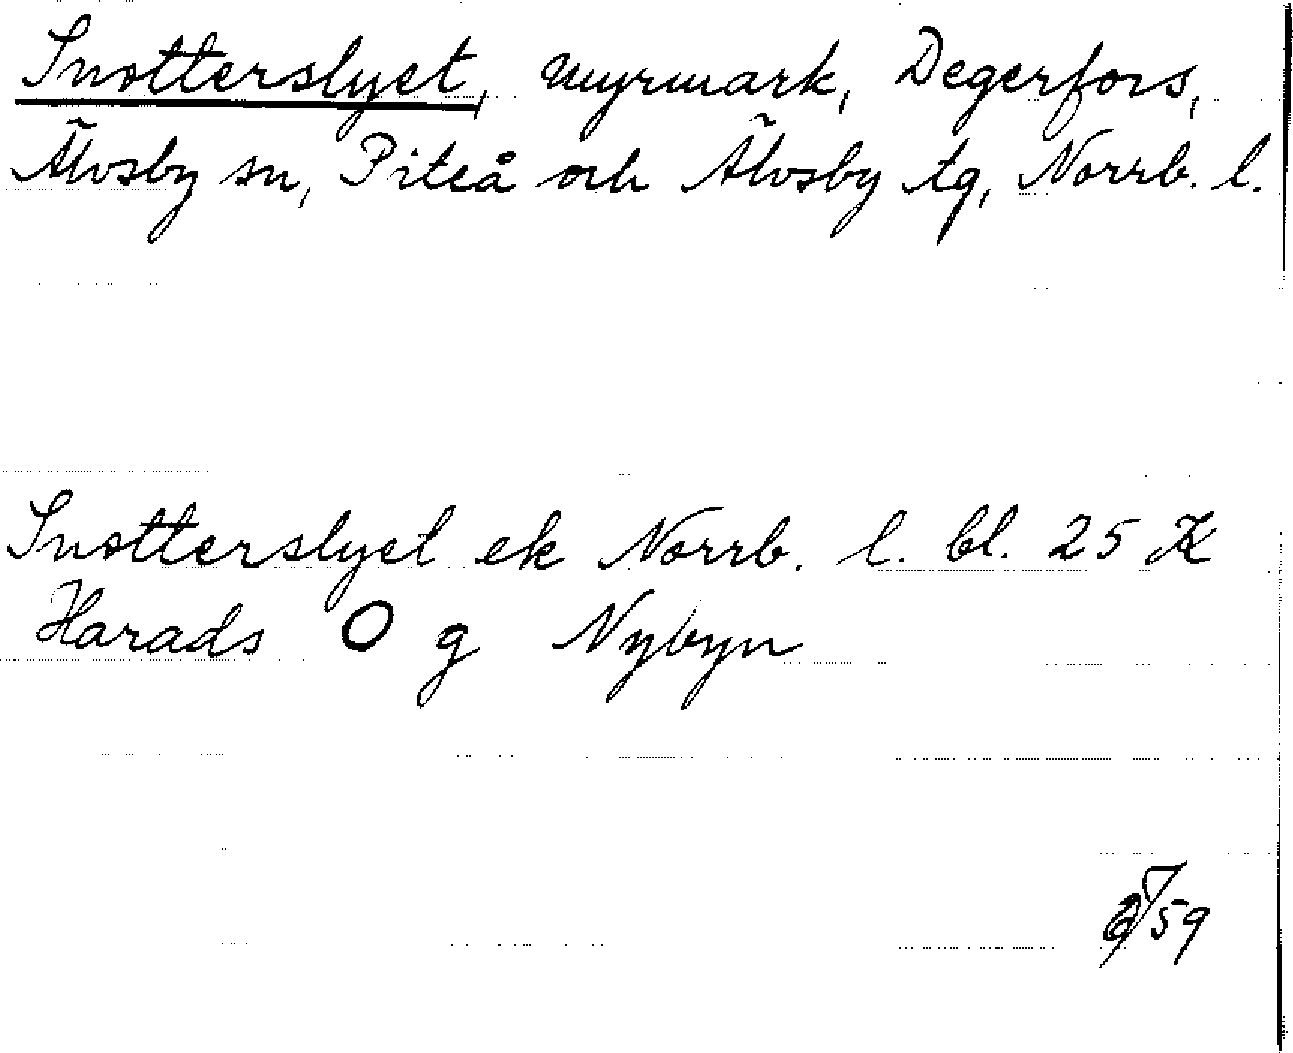 Snotterslyet, myrmark, Degerfors,
Älvsby sn, Piteå och Älvsby tg, Norrb. l.
Snotterslyet ek Norrb. l. bl. 25 K
Harads O g Nybyn